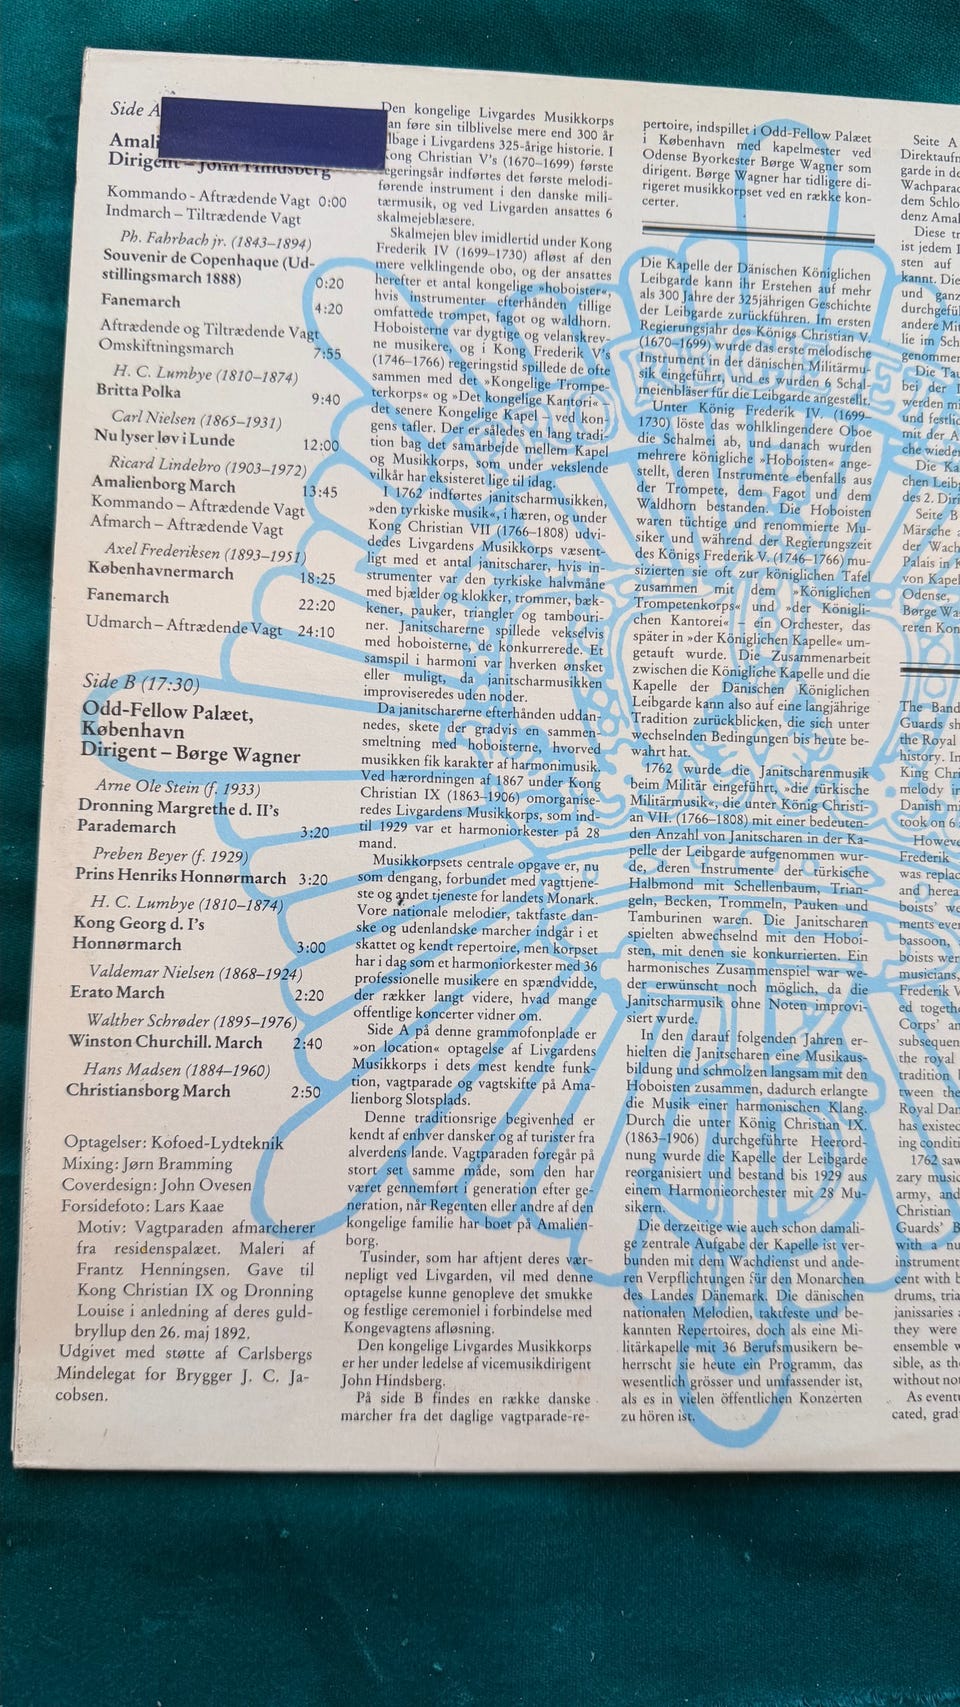 Side A
Amali
Dirigent – John Hindsberg
Kommando - Aftrædende Vagt 0:00
Indmarch – Tiltrædende Vagt
Ph. Fahrbach jr. (1843–1894)
Souvenir de Copenhaque (Ud-
stillingsmarch 1888) 0:20
Fanemarch 4:20
Aftrædende og Tiltrædende Vagt
Omskiftningsmarch 7:55
H. C. Lumbye (1810–1874)
Britta Polka 9:40
Carl Nielsen (1865–1931)
Nu lyser løv i Lunde 12:00
Ricard Lindebro (1903–1972)
Amalienborg March 13:45
Kommando – Aftrædende Vagt
Afmarch – Aftrædende Vagt
Axel Frederiksen (1893–1951)
Københavnermarch 18:25
Fanemarch 22:20
Udmarch – Aftrædende Vagt 24:10
Side B (17:30)
Odd-Fellow Palæet,
København
Dirigent – Børge Wagner
Arne Ole Stein (f. 1933)
Dronning Margrethe d. II's
Parademarch 3:20
Preben Beyer (f. 1929)
Prins Henriks Honnørmarch 3:20
H. C. Lumbye (1810–1874)
Kong Georg d. I's
Honnørmarch 3:00
Valdemar Nielsen (1868–1924)
Erato March 2:20
Walther Schrøder (1895–1976)
Winston Churchill. March 2:40
Hans Madsen (1884–1960)
Christiansborg March 2:50
Optagelser: Kofoed-Lydteknik
Mixing: Jørn Bramming
Coverdesign: John Ovesen
Forsidefoto: Lars Kaae
Motiv: Vagtparaden afmarcherer
fra residenspalæet. Maleri af
Frantz Henningsen. Gave til
Kong Christian IX og Dronning
Louise i anledning af deres guld-
bryllup den 26. maj 1892.
Udgivet med støtte af Carlsbergs
Mindelegat for Brygger J. C. Ja-
cobsen.
Den kongelige Livgardes Musikkorps
an føre sin tilblivelse mere end 300 år
lbage i Livgardens 325-årige historie. I
ong Christian V's (1670–1699) første
egeringsår indførtes det første melodi-
førende instrument i den danske mili-
tærmusik, og ved Livgarden ansattes 6
skalmejeblæsere.
Skalmejen blev imidlertid under Kong
Frederik IV (1699–1730) afløst af den
mere velklingende obo, og der ansattes
herefter et antal kongelige »hoboister«,
hvis instrumenter efterhånden tillige
omfattede trompet, fagot og waldhorn.
Hoboisterne var dygtige og velanskrev-
ne musikere, og i Kong Frederik V's
(1746–1766) regeringstid spillede de ofte
sammen med det »Kongelige Trompe-
terkorps« og »Det kongelige Kantori« –
det senere Kongelige Kapel – ved kon-
gens tafler. Der er således en lang tradi-
tion bag det samarbejde mellem Kapel
og Musikkorps, som under vekslende
vilkår har eksisteret lige til idag.
I 1762 indførtes janitscharmusikken,
»den tyrkiske musik«, i hæren, og under
Kong Christian VII (1766–1808) udvi-
dedes Livgardens Musikkorps væsent-
ligt med et antal janitscharer, hvis in-
strumenter var den tyrkiske halvmåne
med bjælder og klokker, trommer, bæk-
kener, pauker, triangler og tambouri-
ner. Janitscharerne spillede vekselvis
med hoboisterne, de konkurrerede. Et
samspil i harmoni var hverken ønsket
eller muligt, da janitscharmusikken
improviseredes uden noder.
Da janitscharerne efterhånden uddan-
nedes, skete der gradvis en sammen-
smeltning med hoboisterne, hvorved
musikken fik karakter af harmonimusik.
Ved hærordningen af 1867 under Kong
Christian IX (1863–1906) omorganise-
redes Livgardens Musikkorps, som ind-
til 1929 var et harmoniorkester på 28
mand.
Musikkorpsets centrale opgave er, nu
som dengang, forbundet med vagttjene-
ste og andet tjeneste for landets Monark.
Vore nationale melodier, taktfaste dan-
ske og udenlandske marcher indgår i et
skattet og kendt repertoire, men korpset
har i dag som et harmoniorkester med 36
professionelle musikere en spændvidde,
der rækker langt videre, hvad mange
offentlige koncerter vidner om.
Side A på denne grammofonplade er
»on location« optagelse af Livgardens
Musikkorps i dets mest kendte funk-
tion, vagtparade og vagtskifte på Ama-
lienborg Slotsplads.
Denne traditionsrige begivenhed er
kendt af enhver dansker og af turister fra
alverdens lande. Vagtparaden foregår på
stort set samme måde, som den har
været gennemført i generation efter ge-
neration, når Regenten eller andre af den
kongelige familie har boet på Amalien-
borg.
Tusinder, som har aftjent deres vær-
nepligt ved Livgarden, vil med denne
optagelse kunne genopleve det smukke
og festlige ceremoniel i forbindelse med
Kongevagtens afløsning.
Den kongelige Livgardes Musikkorps
er her under ledelse af vicemusikdirigent
John Hindsberg.
På side B findes en række danske
marcher fra det daglige vagtparade-re-
pertoire, indspillet i Odd-Fellow Palæet
i København med kapelmester ved
Odense Byorkester Børge Wagner som
dirigent. Børge Wagner har tidligere di-
rigeret musikkorpset ved en række kon-
certer.
Die Kapelle der Dänischen Königlichen
Leibgarde kann ihr Erstehen auf mehr
als 300 Jahre der 325jährigen Geschichte
der Leibgarde zurückführen. Im ersten
Regierungsjahr des Königs Christian V.
(1670–1699) wurde das erste melodische
Instrument in der dänischen Militärmu-
sik eingeführt, und es wurden 6 Schal-
meienbläser für die Leibgarde angestellt.
Unter König Frederik IV. (1699–
1730) löste das wohlklingendere Oboe
die Schalmei ab, und danach wurden
mehrere königliche »Hoboisten« ange-
stellt, deren Instrumente ebenfalls aus
der Trompete, dem Fagot und dem
Waldhorn bestanden. Die Hoboisten
waren tüchtige und renommierte Mu-
siker und während der Regierungszeit
des Königs Frederik V. (1746–1766) mu-
sizierten sie oft zur königlichen Tafel
zusammen mit dem »Königlichen
Trompetenkorps« und »der Königli-
chen Kantorei« – ein Orchester, das
später in »der Königlichen Kapelle« um-
getauft wurde. Die Zusammenarbeit
zwischen die Königliche Kapelle und die
Kapelle der Dänischen Königlichen
Leibgarde kann also auf eine langjährige
Tradition zurückblicken, die sich unter
wechselnden Bedingungen bis heute be-
wahrt hat.
1762 wurde die Janitscharenmusik
beim Militär eingeführt, »die türkische
Militärmusik«, die unter König Christi-
an VII. (1766–1808) mit einer bedeuten-
den Anzahl von Janitscharen in der Ka-
pelle der Leibgarde aufgenommen wur-
de, deren Instrumente der türkische
Halbmond mit Schellenbaum, Trian-
geln, Becken, Trommeln, Pauken und
Tamburinen waren. Die Janitscharen
spielten abwechselnd mit den Hoboi-
sten, mit denen sie konkurrierten. Ein
harmonisches Zusammenspiel war we-
der erwünscht noch möglich, da die
Janitscharmusik ohne Noten improvi-
siert wurde.
In den darauf folgenden Jahren er-
hielten die Janitscharen eine Musikaus-
bildung und schmolzen langsam mit den
Hoboisten zusammen, dadurch erlangte
die Musik einer harmonischen Klang.
Durch die unter König Christian IX.
(1863–1906) durchgeführte Heerord-
nung wurde die Kapelle der Leibgarde
reorganisiert und bestand bis 1929 aus
einem Harmonieorchester mit 28 Mu-
sikern.
Die derzeitige wie auch schon damali-
ge zentrale Aufgabe der Kapelle ist ver-
bunden mit dem Wachdienst und ande-
ren Verpflichtungen für den Monarchen
des Landes Dänemark. Die dänischen
nationalen Melodien, taktfeste und be-
kannten Repertoires, doch als eine Mi-
litärkapelle mit 36 Berufsmusikern be-
herrscht sie heute ein Programm, das
wesentlich grösser und umfassender ist,
als es in vielen öffentlichen Konzerten
zu hören ist.
Seite A
Direktaufn
garde in de
Wachparac
dem Schlo
denz Amal
Diese tr
ist jedem I
sten auf
kannt. Die
und ganz
durchgefül
andere Mit
lie im Sch
genommer
Die Tau
bei der I
werden mi
und festlic
mit der A
che wieder
Die Ka
chen Leibg
des 2. Diri
Seite B
Märsche a
der Wach
Palais in K
von Kapel
Odense,
Børge Wa
reren Kon
The Band
Guards sh
the Royal
history. In
King Chri
melody in
Danish mi
took on 6
Howeve
Frederik
was replac
and herea
boists' we
ments ever
bassoon,
boists wer
musicians,
Frederik V
ed togethe
Corps' an
subsequen
the royal
tradition
tween the
Royal Dan
has existec
ing conditi
1762 saw
zary music
army, and
Christian
Guards' B
with a nu
instrument
cent with b
drums, tria
janissaries
they were
ensemble w
sible, as th
without no
As eventu
cated, grad